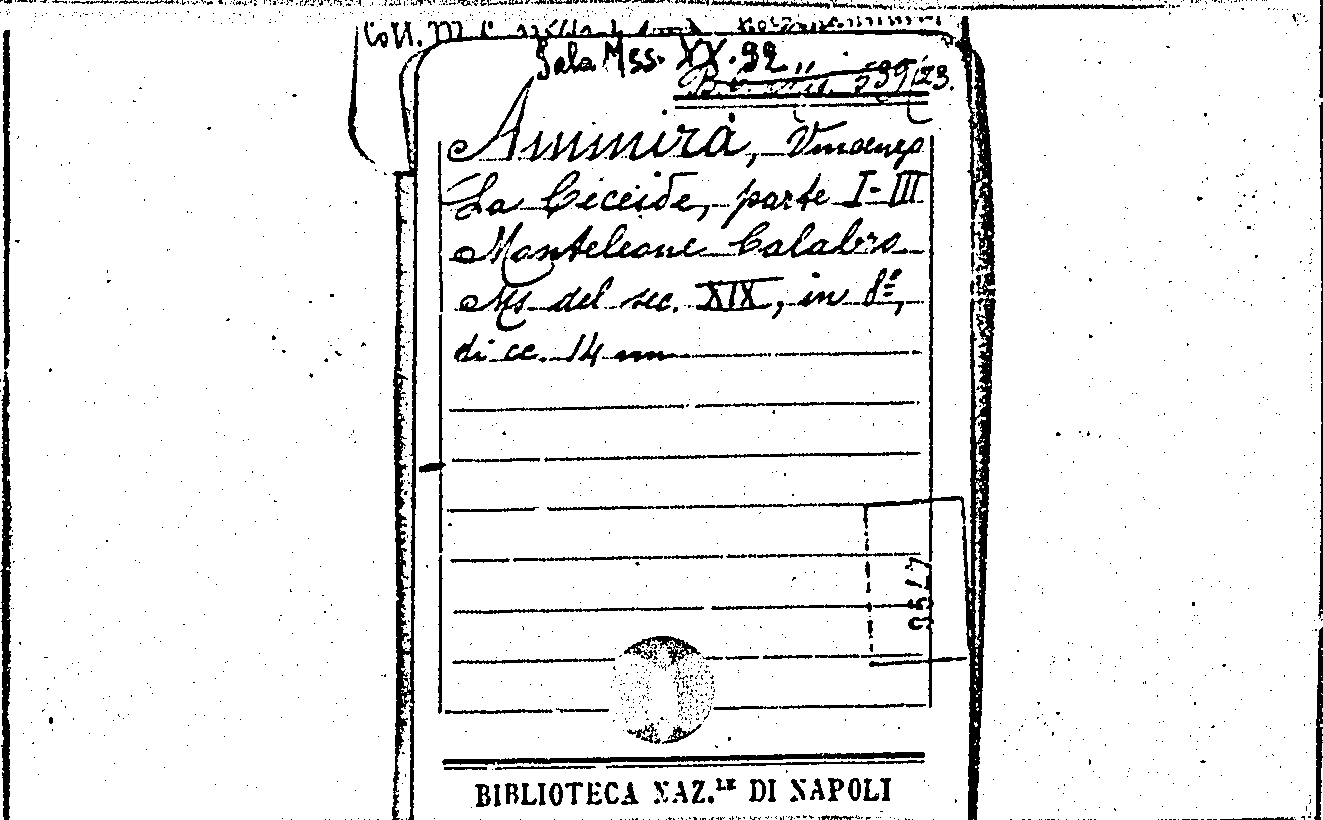 Coll. M. C.
Sala Mss. XX. 92
Ammirà, Vincenzo
La Ceceide, parte I-III
Monteleone Calabro
Ms. del sec. XIX, in 8º,
di cc. 14 nn
9517
BIBLIOTECA NAZ.LE DI NAPOLI